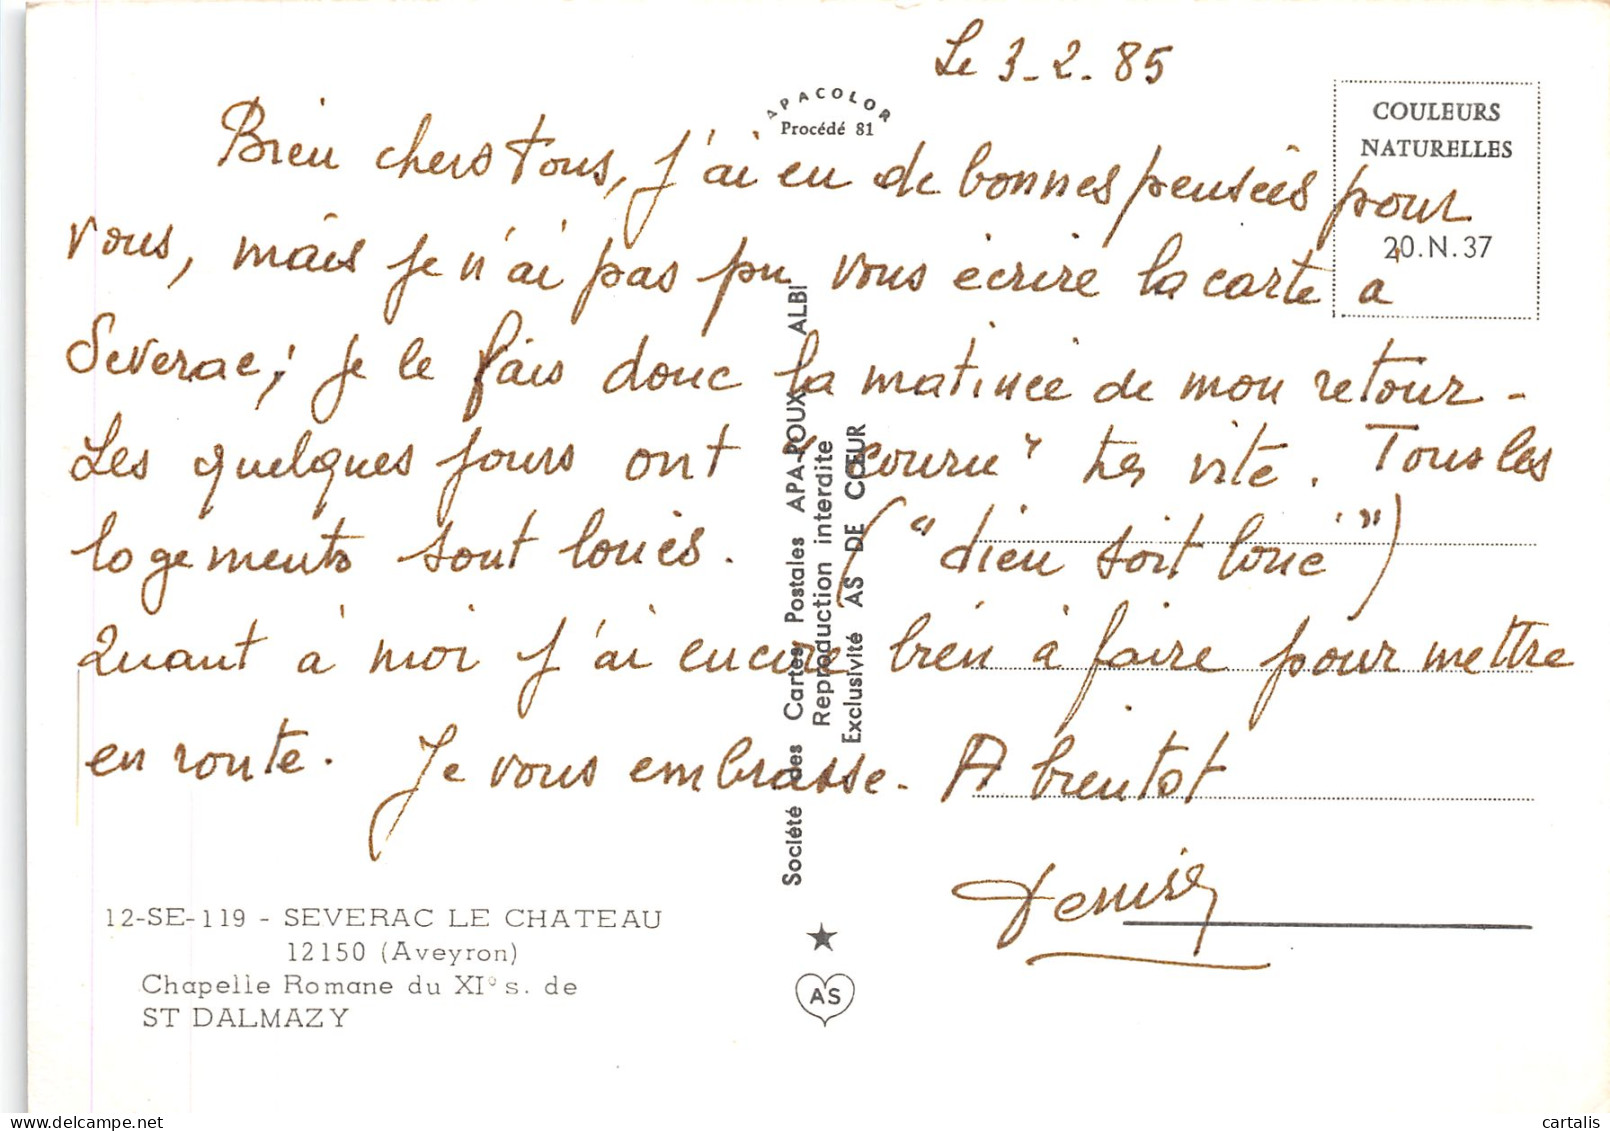 Le 3-2-85
APACOLOR
Procédé 81
COULEURS
NATURELLES
20.N.37
Bien chers tous, j'ai eu de bonnes pensées pour
vous, mais je n'ai pas pu vous écrire la carte à
Severac; je le fais donc la matinée de mon retour -
Les quelques jours ont "couru" très vite. Tous les
logements sont loués. ("dieu soit loué")
Quant à moi j'ai encore bien à faire pour mettre
en route. Je vous embrasse. A bientot
Denise
Société des Cartes Postales APA-POUX ALBI
Reproduction interdite
Exclusivité AS DE CŒUR
12-SE-119 - SEVERAC LE CHATEAU
12150 (Aveyron)
Chapelle Romane du XI° s. de
ST DALMAZY
AS
cartalis